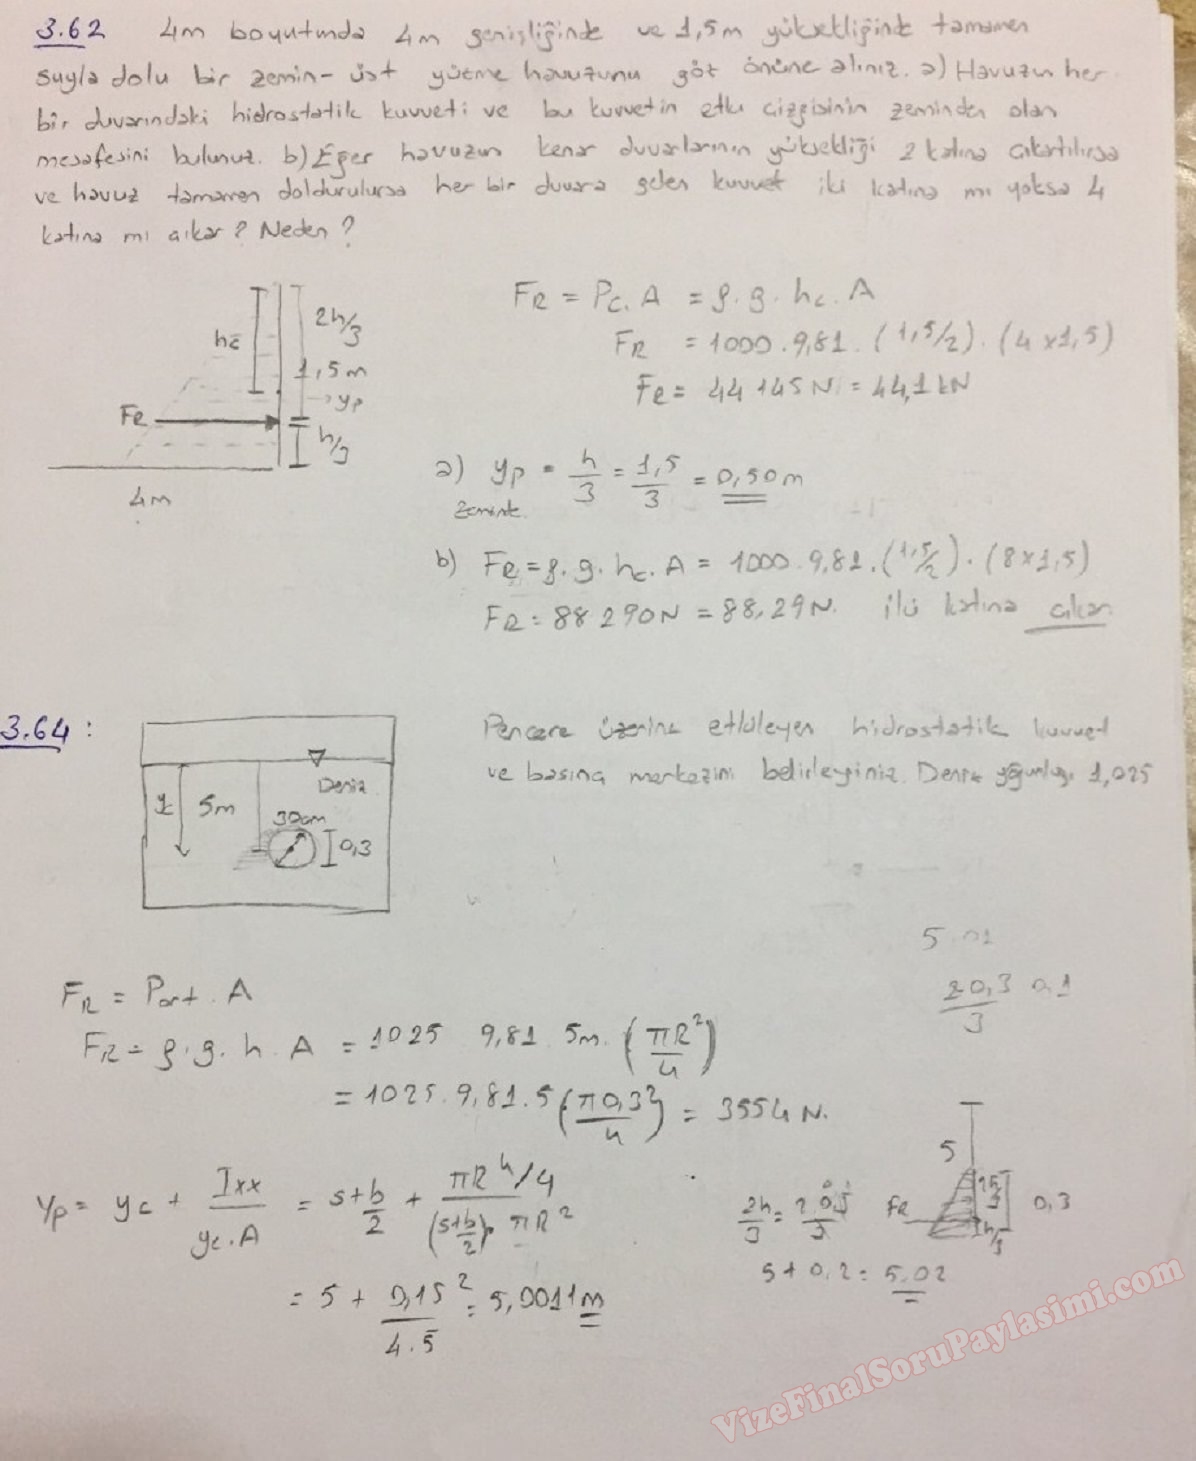 3.62 4m boyutunda 4m genişliğinde ve 1,5m yüksekliğinde tamamen
suyla dolu bir zemin-üst yüzme havuzunu göz önüne alınız. a) Havuzun her
bir duvarındaki hidrostatik kuvveti ve bu kuvvetin etki çizgisinin zeminden olan
mesafesini bulunuz. b) Eğer havuzun kenar duvarlarının yüksekliği 2 katına çıkartılırsa
ve havuz tamamen doldurulursa her bir duvara gelen kuvvet iki katına mı yoksa 4
katına mı çıkar? Neden?
hc
2h/3
1,5m
yp
FR
h/3
4m
FR = Pc.A = ρ.g.hc.A
FR = 1000.9,81.(1,5/2).(4x1,5)
FR = 44145N = 44,1 kN
a) yp = h/3 = 1,5/3 = 0,50m
b) FR = ρ.g.hc.A = 1000.9,81.(1,5/2).(8x1,5)
FR = 88290N = 88,29N. iki katına çıkar
3.64:
Pencere üzerine etkileyen hidrostatik kuvvet
ve basınç merkezini belirleyiniz. Deniz yoğunluğu 1,025
Deniz
5m
30cm
0,3
5 01
2 0,3 0,1
3
FR = Port.A
FR = ρ.g.h.A = 1025 9,81 5m.(πR²/4)
= 1025.9,81.5(π0,3²/4) = 3554 N.
yp = yc + Ixx/yc.A = s+b/2 + πR⁴/4/(s+b/2).πR²
= 5 + 0,15²/4.5 = 5,0011m
5
FR
h/3
0,3
2h/3
5+0,2 = 5,02
VizeFinalSoruPaylasimi.com